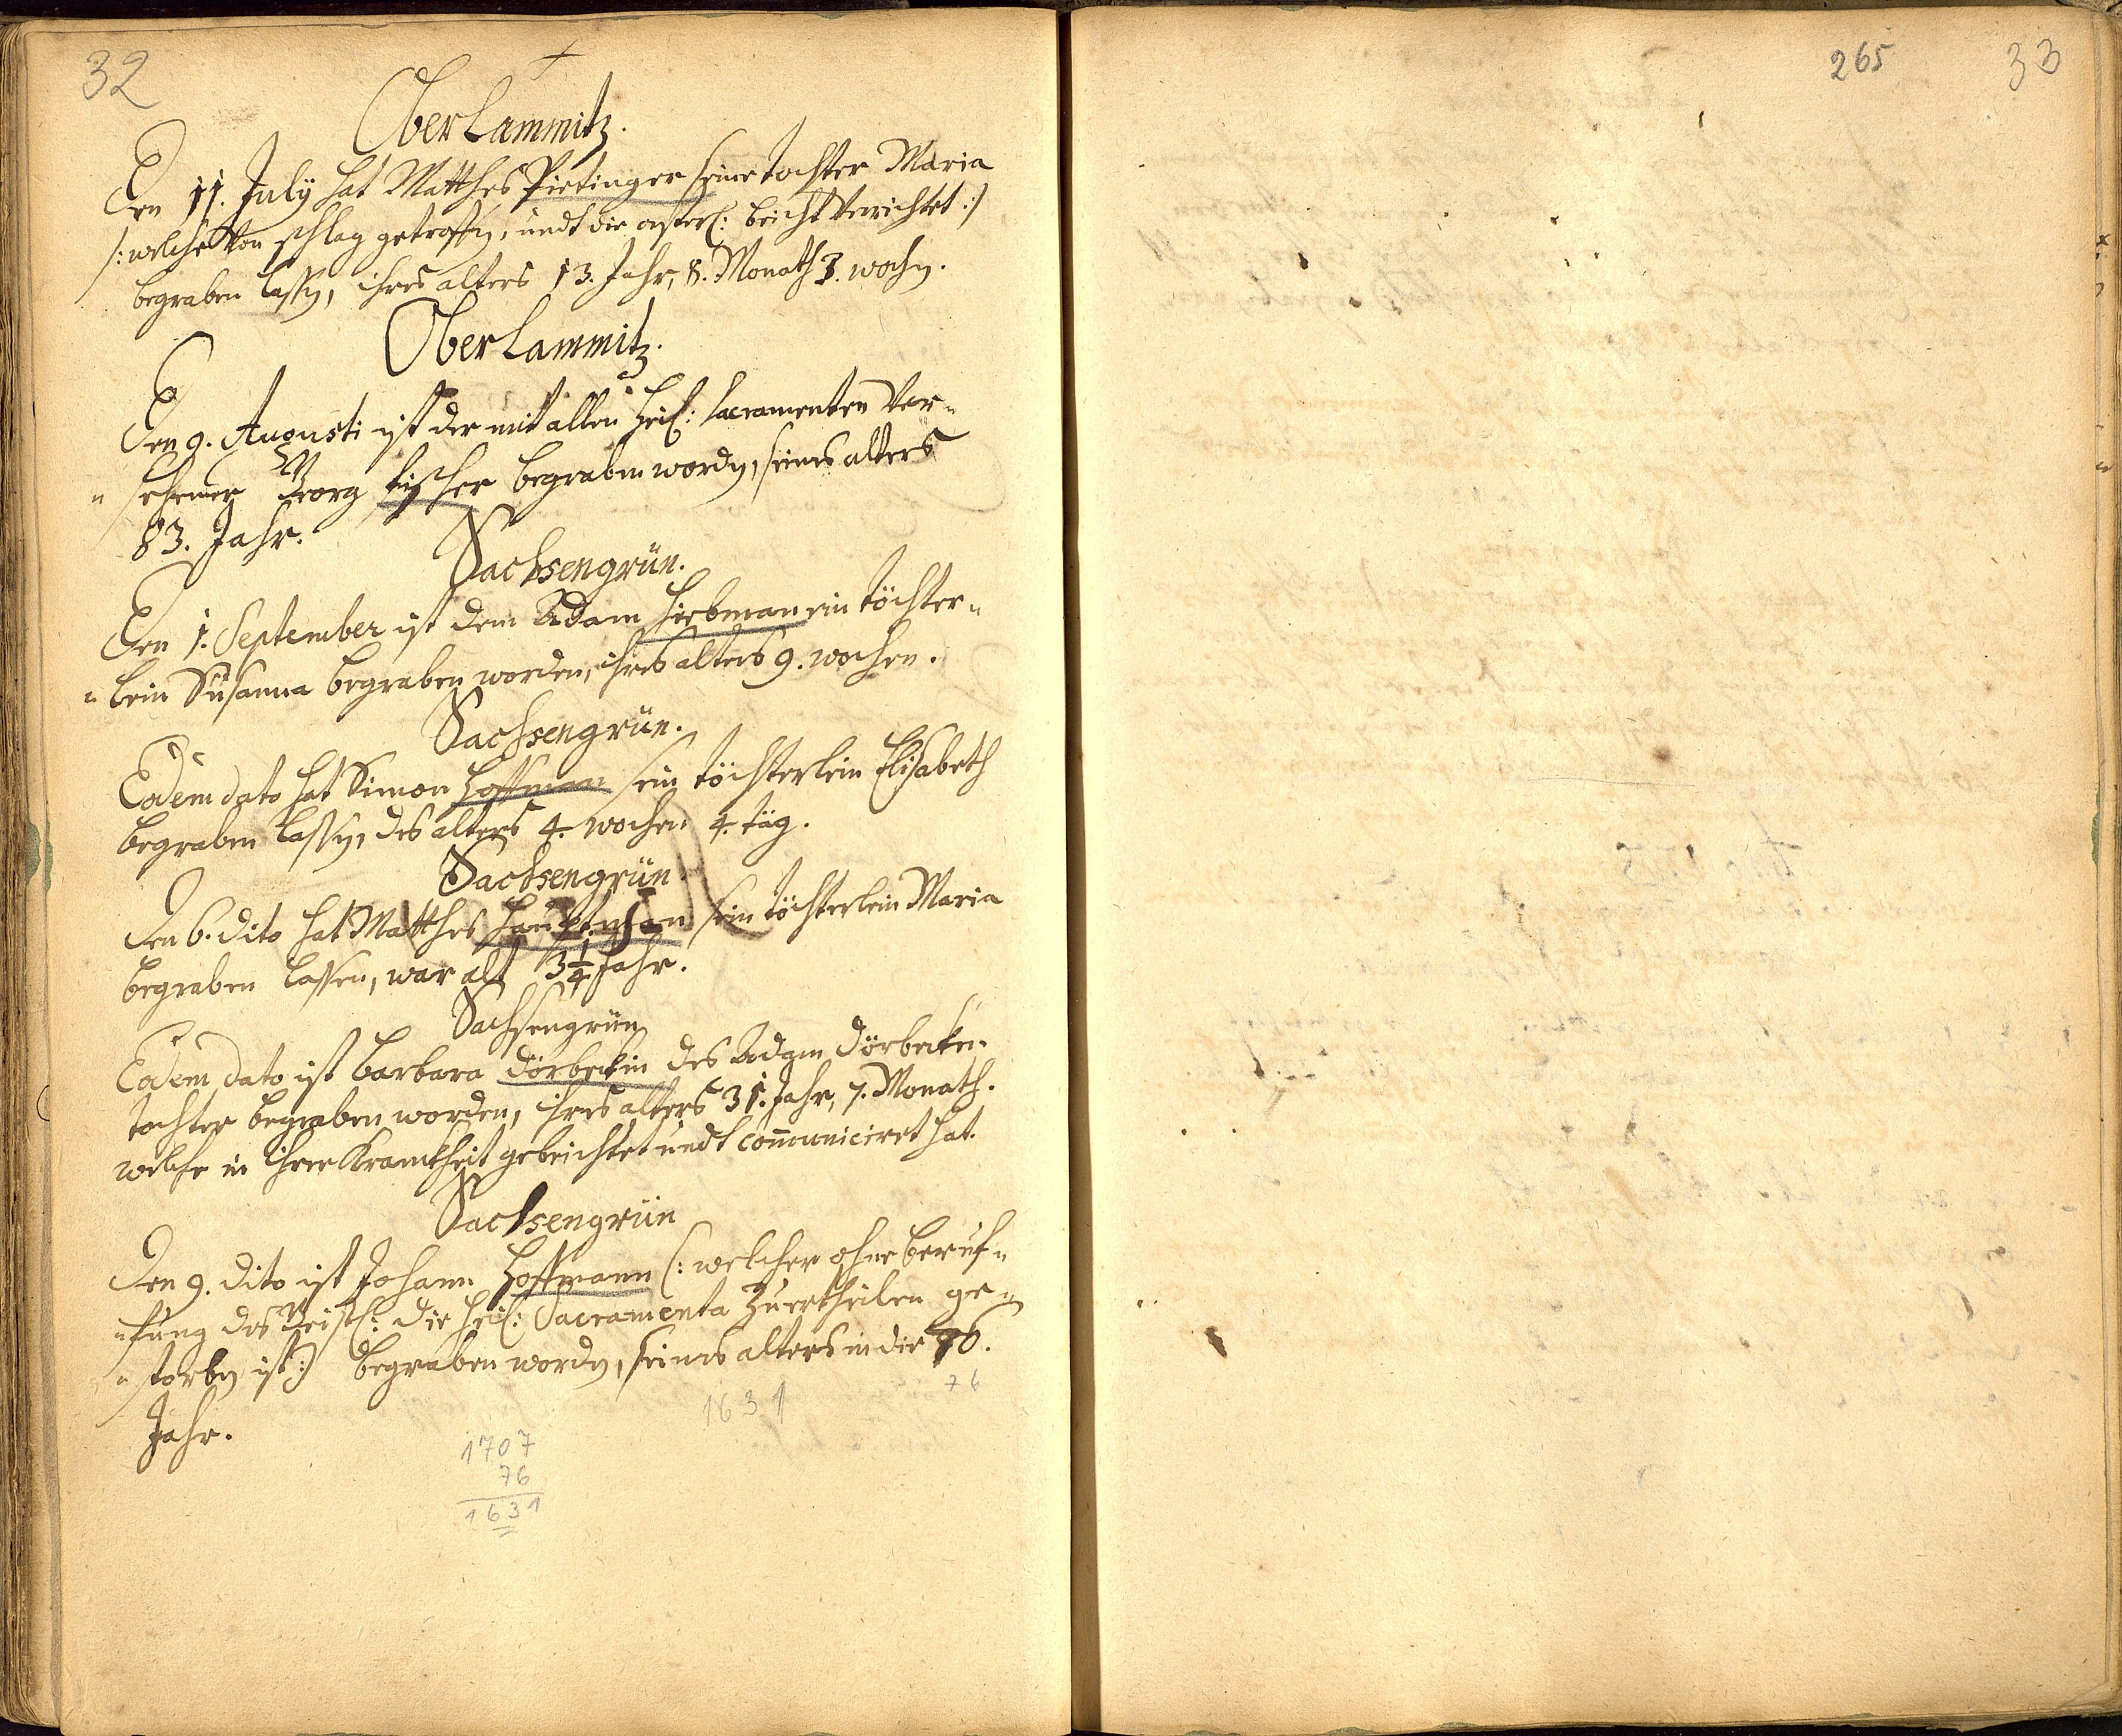 32
Ober Lammitz.
Den 11. July hat Matthes Pietinger seine tochter Maria
/: welche von schlag getroffen, undt die österl: beicht verrichtet :/
begraben lassen, ihres alters 13. Jahr, 8. Monath 3. wochen.
Ober Lammitz.
Den 9. Augusti ist der mit allen heil: Sacramenten Ver=
=sehener Georg fischer begraben worden, seines alters
83. Jahr.
Sachsengrün.
Den 1. September ist dem Adam Hiebman ein töchter=
=lein Susanna begraben worden, ihres alters 9. wochen.
Sachsengrün.
Eodem dato hat Simon Hoffman sein töchterlein Elisabeth
begraben lassen, des alters 4. wochen 4. täg.
Sachsengrün.
Den 6. dito hat Matthes sein töchterlein Maria
begraben lassen, war alt 3 1/4 Jahr.
Sachsengrün
Eodem dato ist Barbara Dörbeckin des Adam Dörbecken
tochter begraben worden, ihres alters 31. Jahr, 7. Monath.
welche in ihrer Kranckheit gebeichtet undt com̄uniciret hat.
Sachsengrün
Den 9. dito ist Johann Hoffmann (: welcher ohne beruf=
=fung des Geistl: die heil: Sacramenta zu ertheilen ge=
=storben ist :) begraben worden, seines alters in die 76.
76
Jahr.
1631
1707
76
1631
265
33